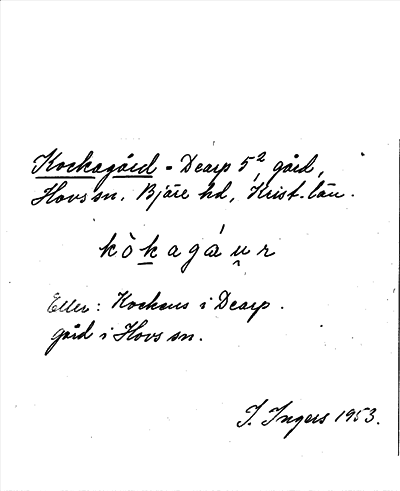 Kockagård = Dearp 5², gård,
Hovs sn. Bjäre hd, Krist. län.
kòkagáur
Eller: Kockens i Dearp.
gård i Hovs sn.
I. Ingers 1953.